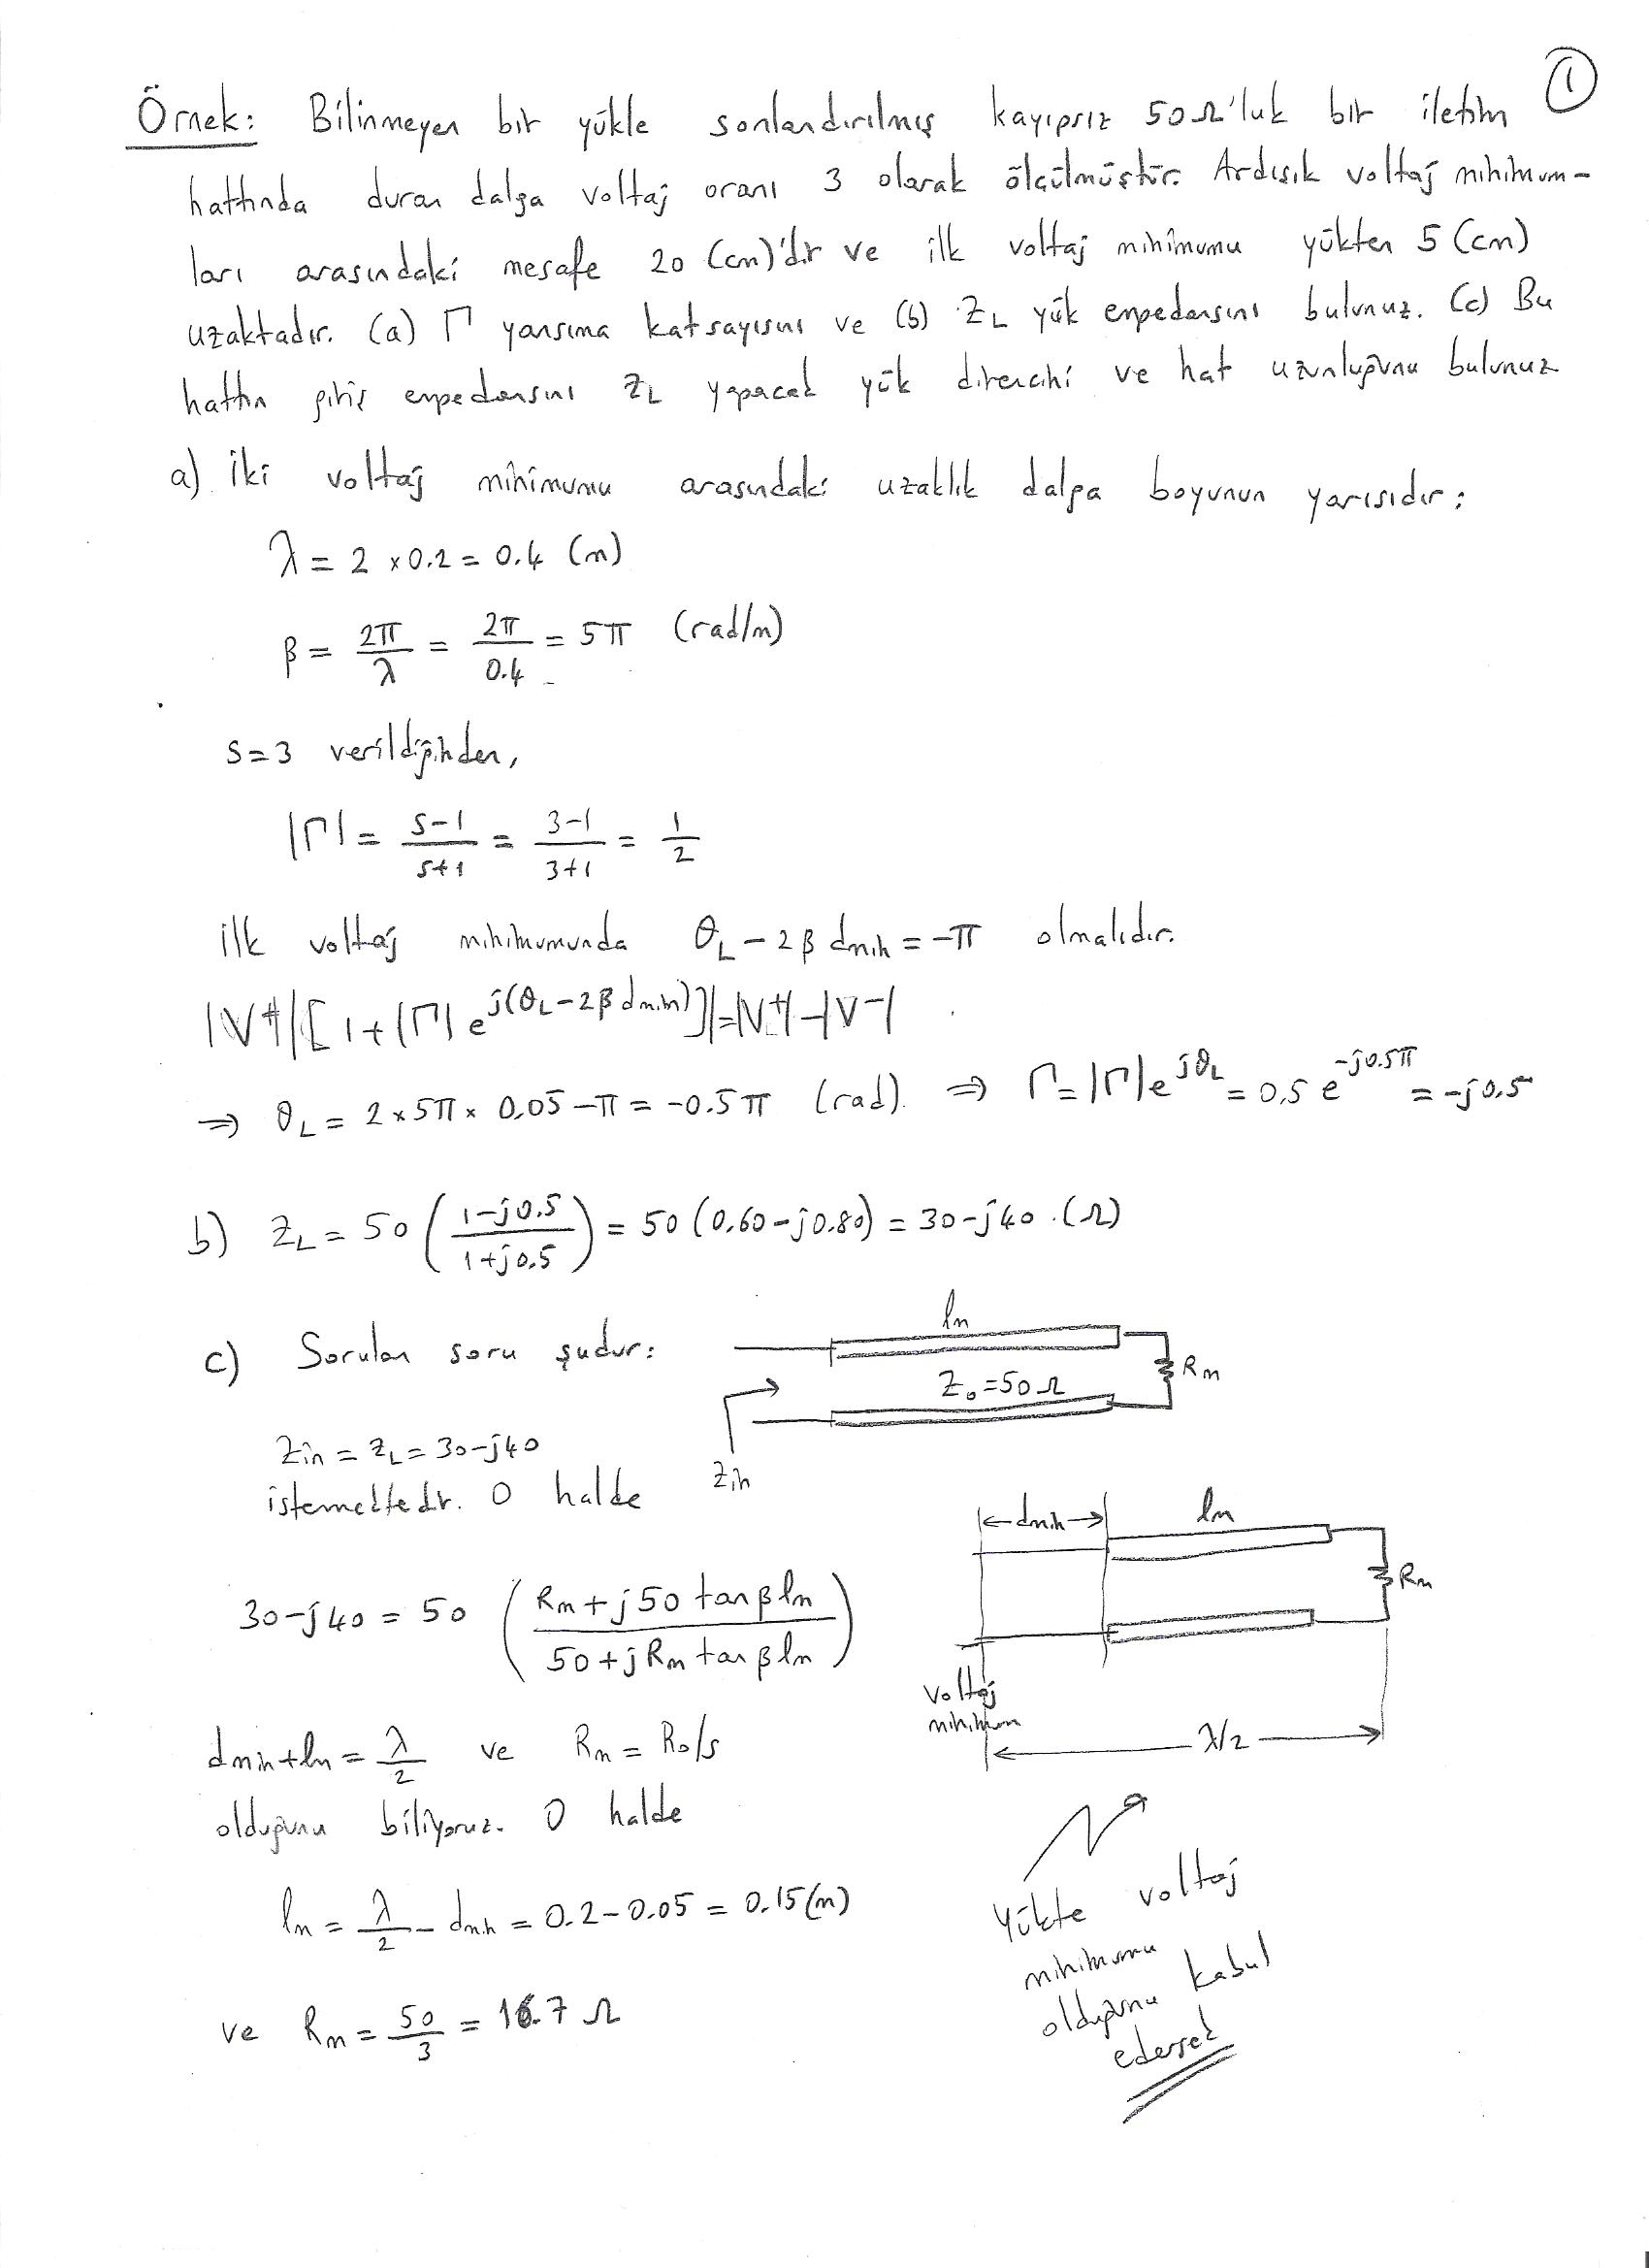 1
Örnek: Bilinmeyen bir yükle sonlandırılmış kayıpsız 50Ω'luk bir iletim
hattında duran dalga voltaj oranı 3 olarak ölçülmüştür. Ardışık voltaj minimum-
ları arasındaki mesafe 20 (cm)'dir ve ilk voltaj minimumu yükten 5 (cm)
uzaktadır. (a) Γ yansıma katsayısını ve (b) ZL yük empedansını bulunuz. (c) Bu
hattın giriş empedansını ZL yapacak yük direncini ve hat uzunluğunu bulunuz
a) İki voltaj minimumu arasındaki uzaklık dalga boyunun yarısıdır:
λ = 2 x 0.2 = 0.4 (m)
β = 2π/λ = 2π/0.4 = 5π (rad/m)
S=3 verildiğinden,
|Γ| = S-1/S+1 = 3-1/3+1 = 1/2
ilk voltaj minimumunda θL - 2β dmin = -π olmalıdır.
|V+|[1+|Γ| e^j(θL-2β dmin)]|=|V+|-|V-|
⇒ θL = 2 x 5π x 0.05 - π = -0.5π (rad). ⇒ Γ = |Γ|e^jθL = 0,5 e^-j0.5π = -j0,5
b) ZL = 50 (1-j0.5/1+j0.5) = 50 (0.60-j0.80) = 30-j40 (Ω)
c) Sorulan soru şudur:
lm
Z0=50Ω
Rm
Zin
Zin = ZL = 30-j40
istemektedir. O halde
dmin
lm
Rm
30-j40 = 50 (Rm+j50 tanβlm/50+jRm tanβlm)
voltaj
minimum
λ/2
dmin+lm = λ/2 ve Rm = R0/S
olduğunu biliyoruz. O halde
lm = λ/2 - dmin = 0.2-0.05 = 0.15(m)
Yükte voltaj
minimumu
olduğunu kabul
edersek
ve Rm = 50/3 = 16.7 Ω